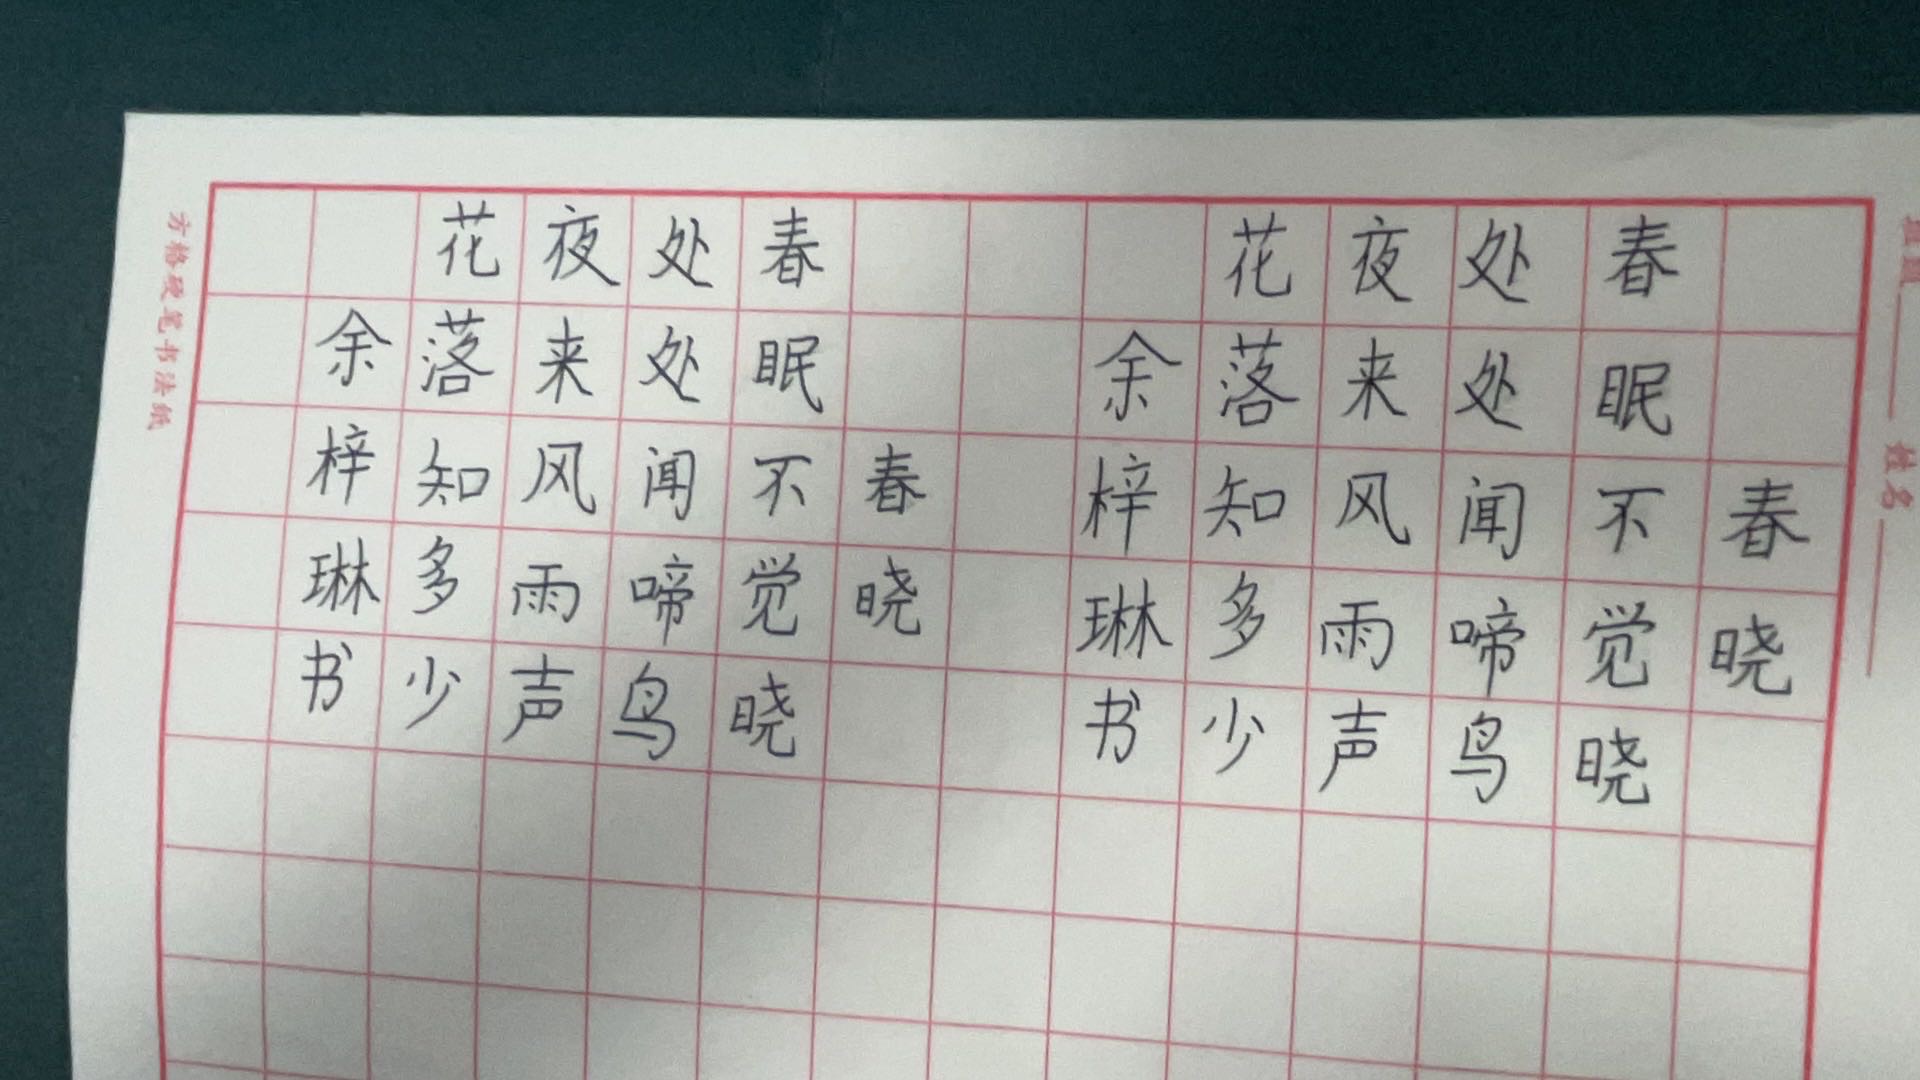 春晓
春眠不觉晓
处处闻啼鸟
夜来风雨声
花落知多少
余梓琳书
春晓
春眠不觉晓
处处闻啼鸟
夜来风雨声
花落知多少
余梓琳书
姓名
方格硬笔书法纸